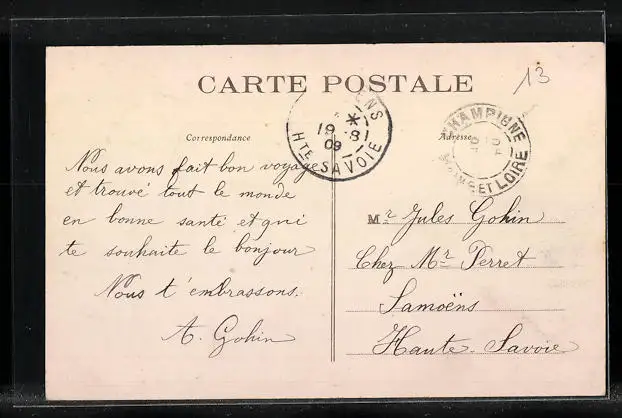 CARTE POSTALE
13
Correspondance
Adresse
ENS
*
19 81
09
HTE SAVOIE
CHAMPIGNE
ET LOIRE
Nous avons fait bon voyage
et trouvé tout le monde
en bonne santé et qui
te souhaite le bonjour
Nous t'embrassons.
A. Gohin
Mr Jules Gohin
Chez Mr Perret
Samoëns
Haute-Savoie